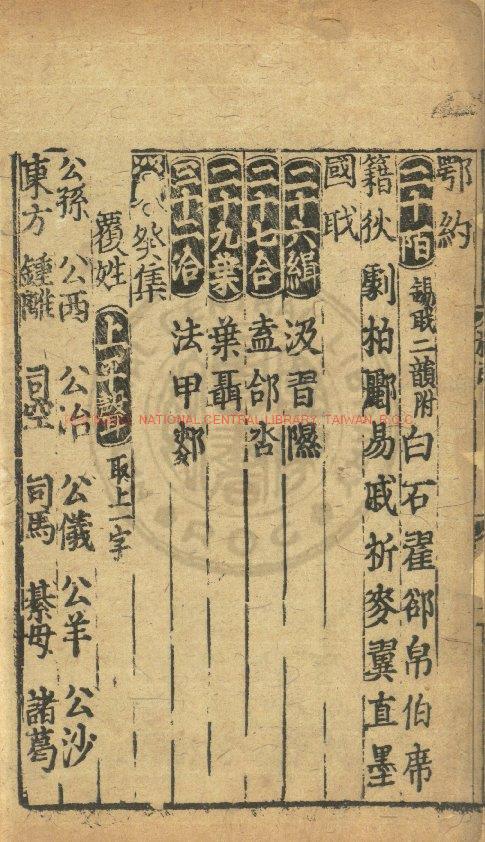 鄂約
二十陌 錫職二韻附 白石翟郤帛伯席
籍狄劇柏酈易戚析麥翼直墨
國職
二十六緝 汲習隰
二十七合 盍郃沓
二十九葉 葉聶
三十二洽 法甲郟
癸集
覆姓 上平聲 取上一字
公孫 公西 公冶 公儀 公羊 公沙
東方 鍾離 司空 司馬 綦母 諸葛
NATIONAL CENTRAL LIBRARY, TAIWAN, R.O.C